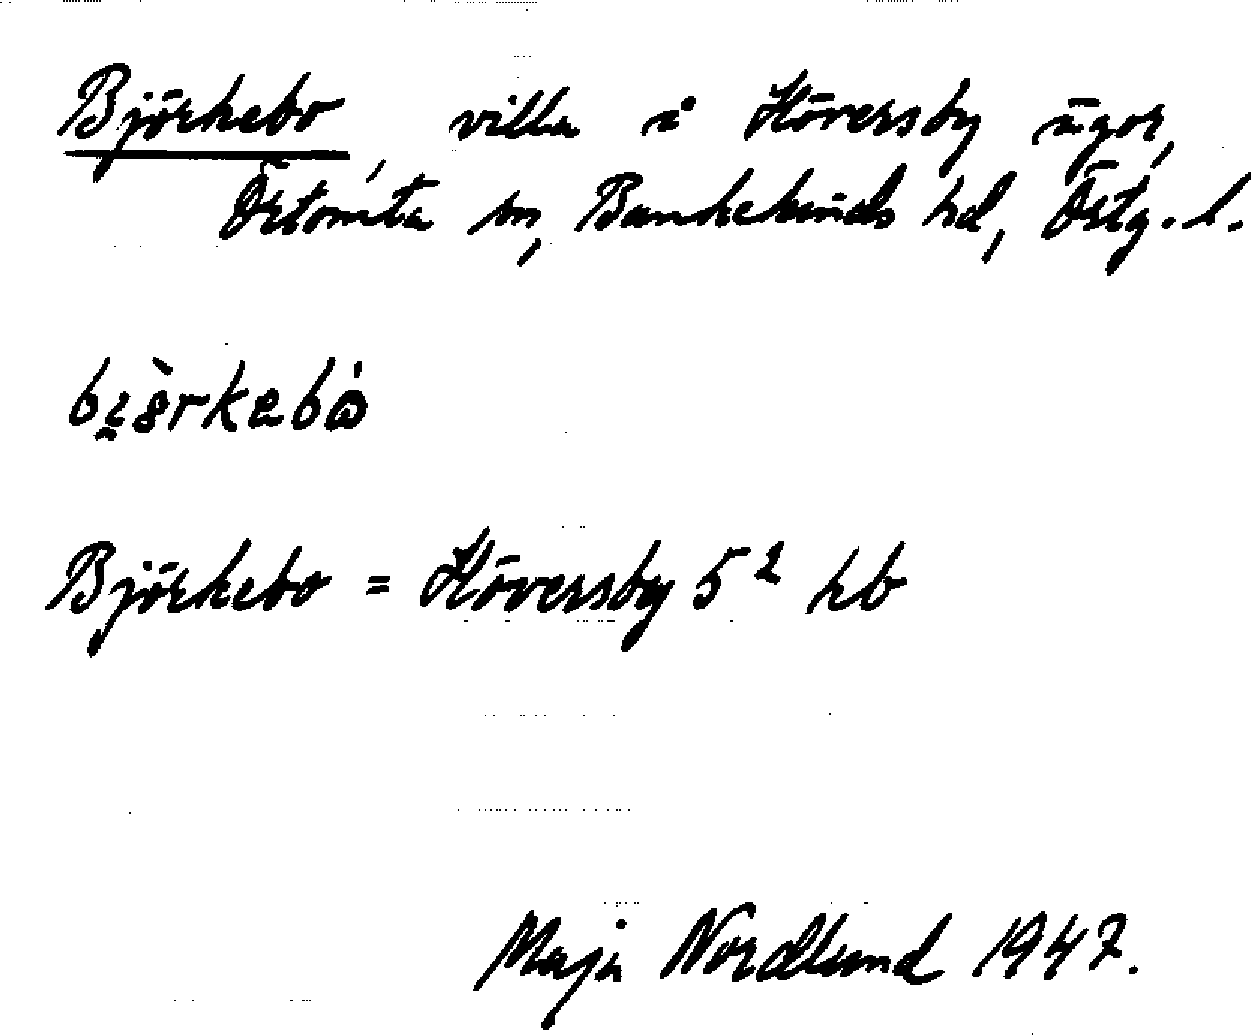 Björkebo, villa i Höversby ägor,
Örtomta sn, Bankekinds hd, Östg. l.
Björkebo = Höversby 5² hb
Maja Nordlund 1947.